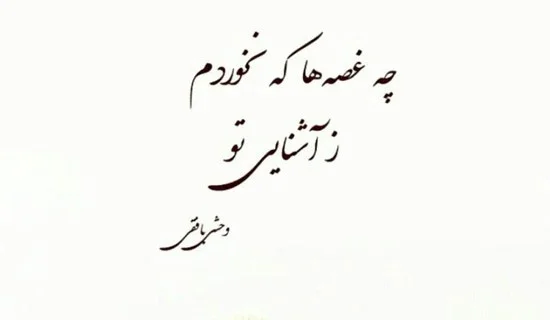 چه غصه‌ها که نخوردم
ز آشنایی تو
وحشی بافقی